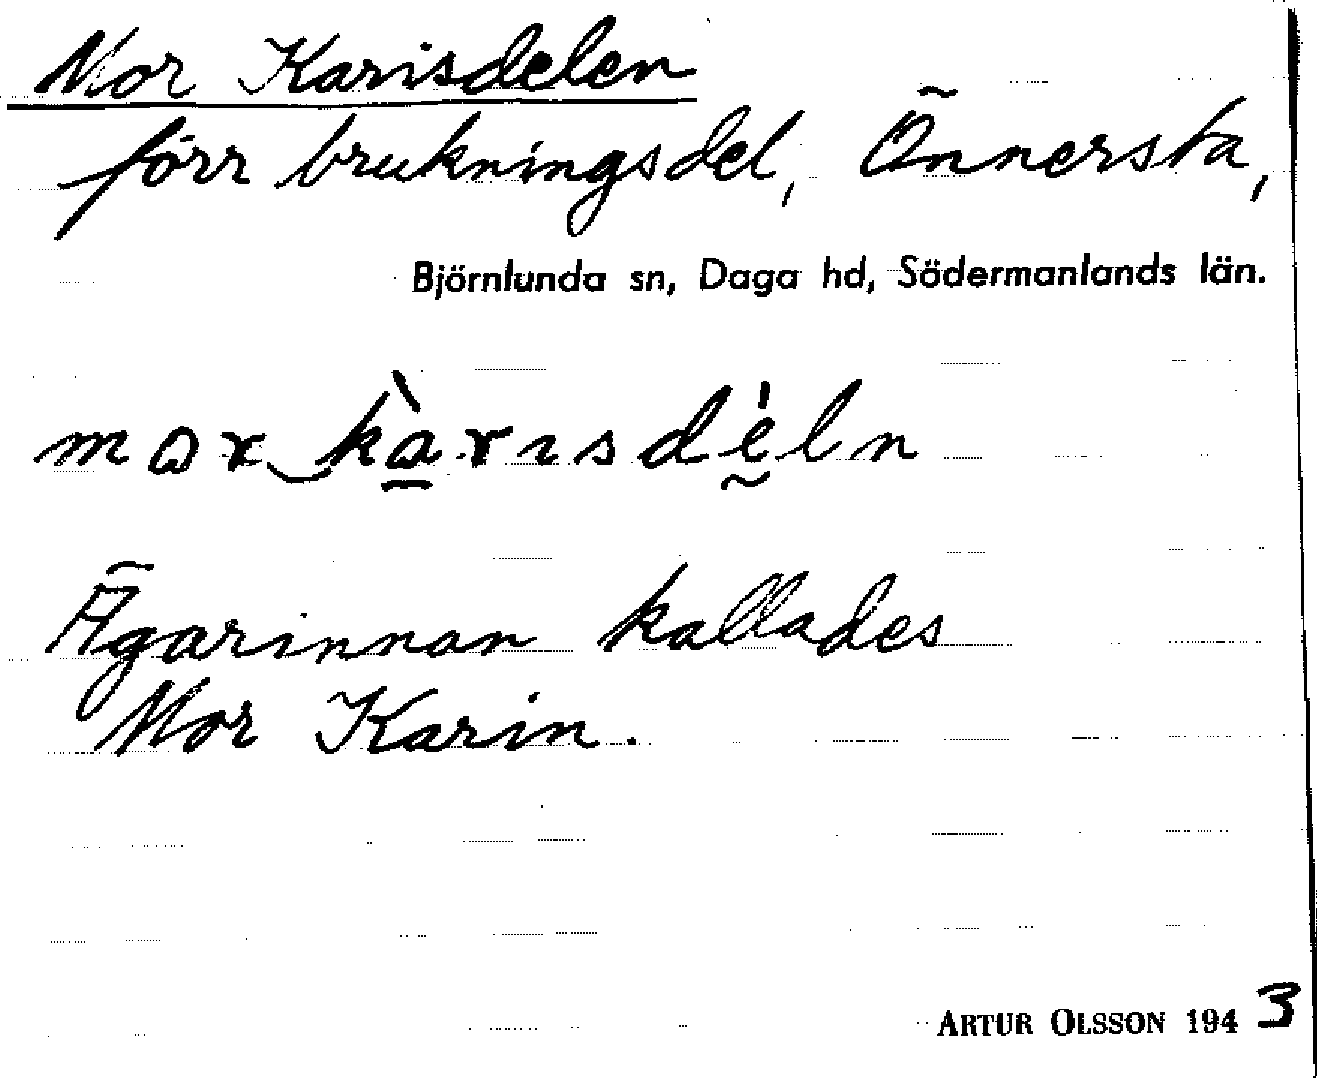 Mor Karisdelen
förr brukningsdel, Önnersta,
Björnlunda sn, Daga hd, Södermanlands län.
mor‿kàrısdèln
Ägarinnan kallades
Mor Karin.
ARTUR OLSSON 1943